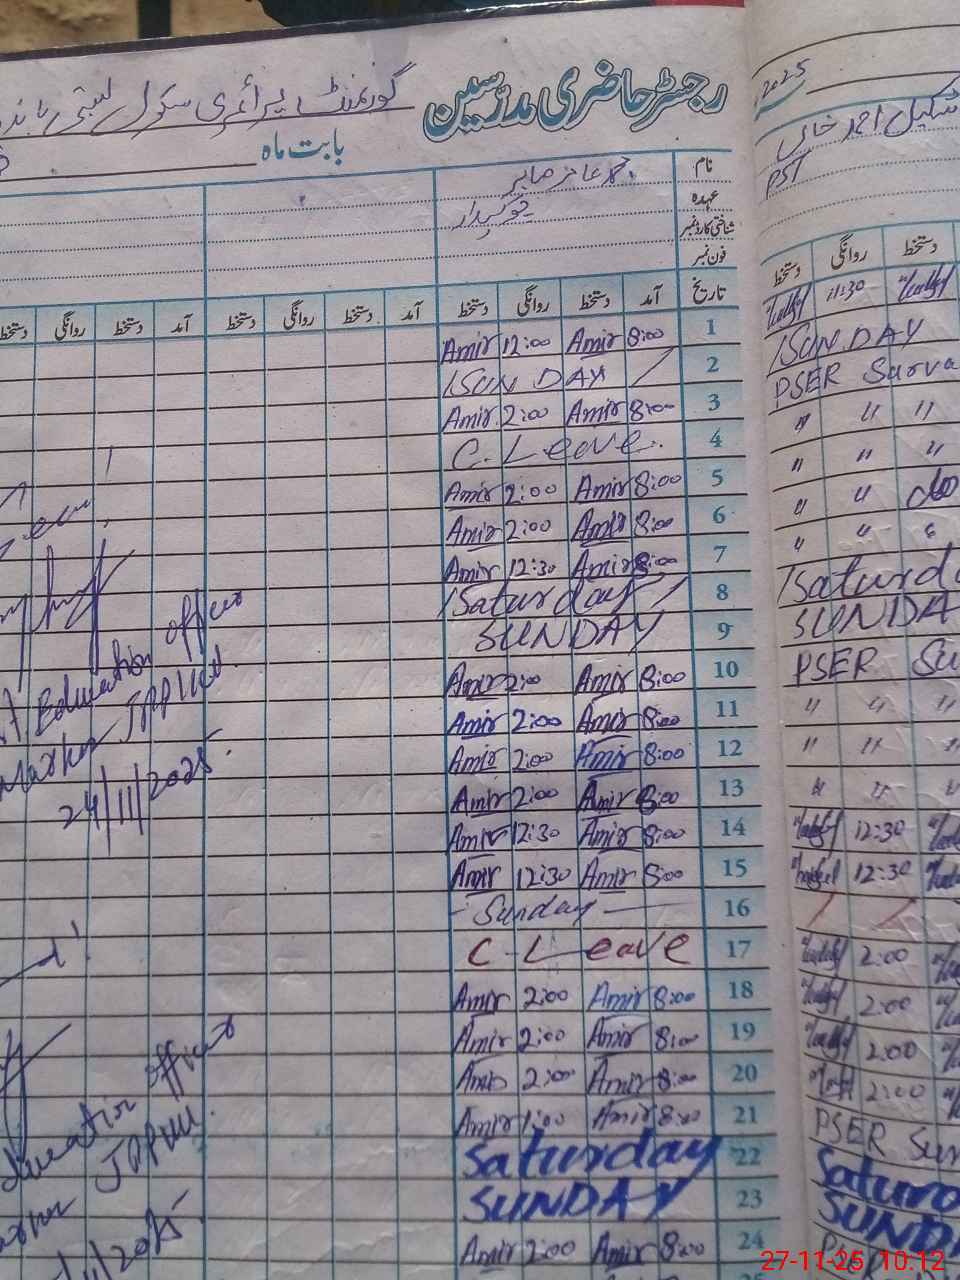 رجسٹر حاضری مدرسین
گورنمنٹ پرائمری سکول
بابت ماہ
نام محمد عامر صابر
عہدہ چوکیدار
شناختی کارڈ نمبر
فون نمبر
تاریخ آمد دستخط روانگی دستخط آمد دستخط روانگی دستخط آمد دستخط روانگی دستخط
Amir 12:00 Amir 8:00 1
SUNDAY 2
Amir 2:00 Amir 8:00 3
C. Leave. 4
Amir 2:00 Amir 8:00 5
Amir 2:00 Amir 8:00 6
Amir 12:30 Amir 8:00 7
Saturday 8
SUNDAY 9
Amir 2:00 Amir 8:00 10
Amir 2:00 Amir 8:00 11
Amir 2:00 Amir 8:00 12
Amir 2:00 Amir 8:00 13
Amir 12:30 Amir 8:00 14
Amir 12:30 Amir 8:00 15
Sunday 16
C. Leave 17
Amir 2:00 Amir 8:00 18
Amir 2:00 Amir 8:00 19
Amir 2:00 Amir 8:00 20
Amir 1:00 Amir 8:00 21
Saturday 22
SUNDAY 23
Amir 2:00 Amir 8:00 24
Education officer
24/11/2025.
Education officer
/11/2025.
2025
شکیل احمد خان
PST
دستخط روانگی دستخط
11:30
SUNDAY
PSER Surva
" " "
" " "
" " do
" " "
Saturda
SUNDA
PSER Su
" " "
" " "
" " "
12:30
12:30
2:00
2:00
2:00
2:00
PSER Sur
Saturd
SUND
27-11-25 10:12